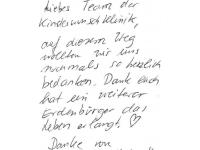 Liebes Team der
Kinderwunschklinik,
auf diesem Weg
wollten wir uns
nochmals so herzlich
bedanken. Danke euch
hat ein weiterer
Erdenbürger das
Leben erlangt. ♡
Danke von